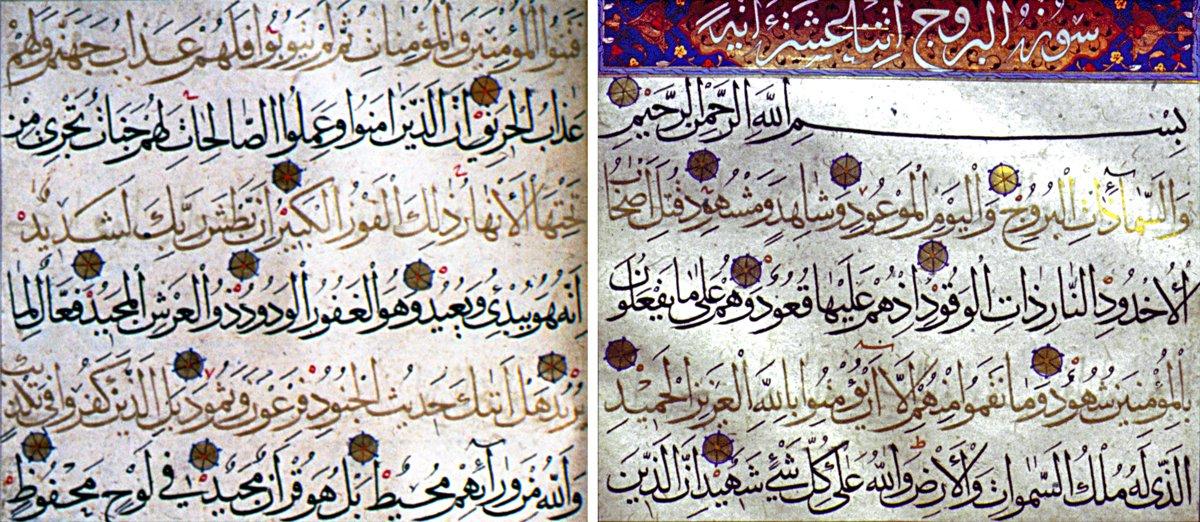 سورة البروج اثنتا عشرة آية
بسم الله الرحمن الرحيم
والسماء ذات البروج واليوم الموعود وشاهد ومشهود قتل اصحاب
الأخدود النار ذات الوقود اذ هم عليها قعود وهم على ما يفعلون
بالمؤمنين شهود وما نقموا منهم الا ان يؤمنوا بالله العزيز الحميد
الذى له ملك السموات والأرض والله على كل شئ شهيد ان الذين
فتنوا المؤمنين والمؤمنات ثم لم يتوبوا فلهم عذاب جهنم ولهم
عذاب الحريق ان الذين امنوا وعملوا الصالحات لهم جنات تجرى من
تحتها الأنهار ذلك الفوز الكبير ان بطش ربك لشديد
انه هو يبدئ ويعيد وهو الغفور الودود ذو العرش المجيد فعال لما
يريد هل اتيك حديث الجنود فرعون وثمود بل الذين كفروا فى تكذيب
والله من ورائهم محيط بل هو قرآن مجيد فى لوح محفوظ